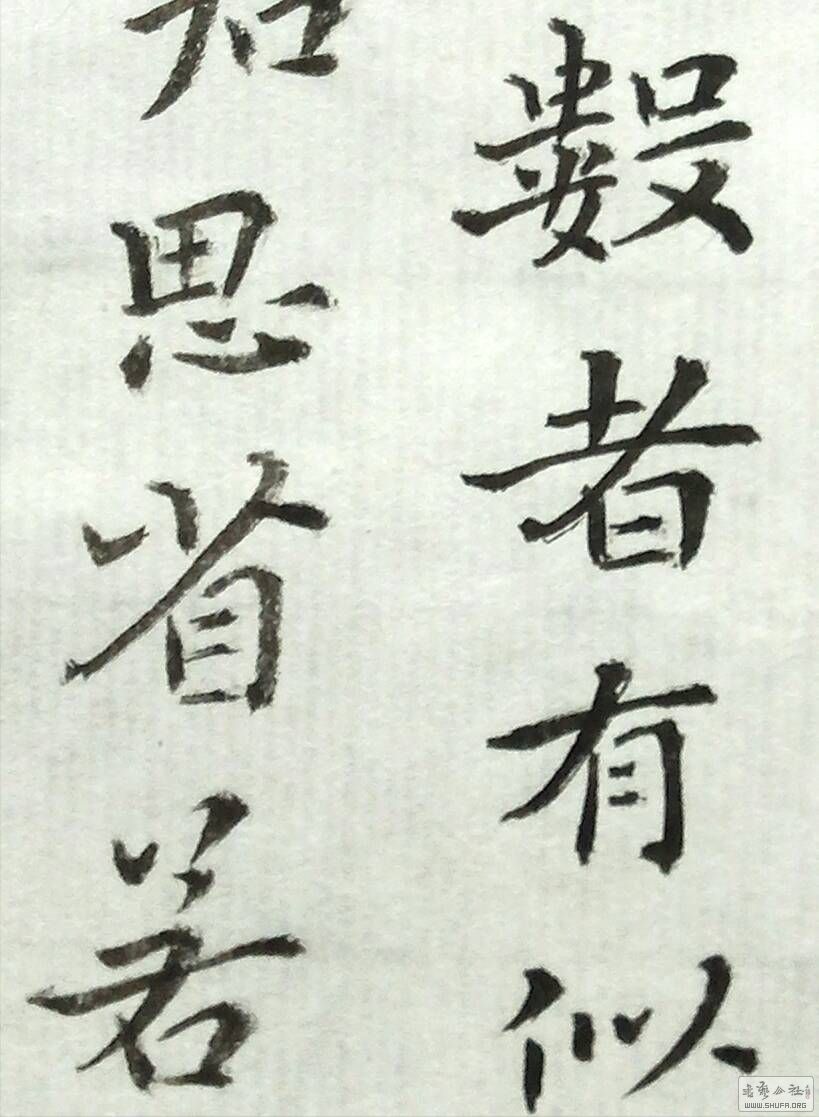 數者有似
思省若
书艺公社
WWW.SHUFA.ORG